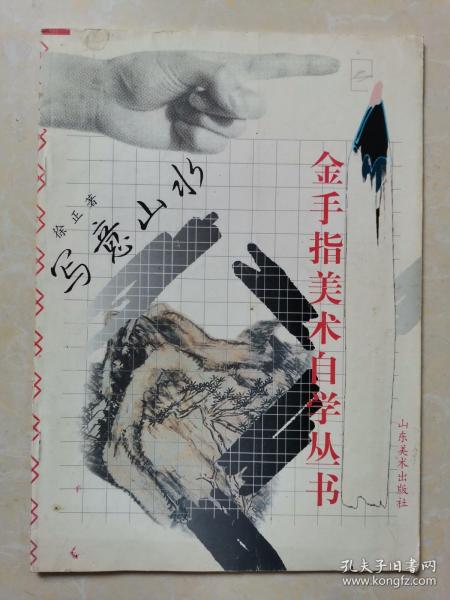 金手指美术自学丛书
写意山水
徐正著
山东美术出版社
孔夫子旧书网
www.kongfz.com